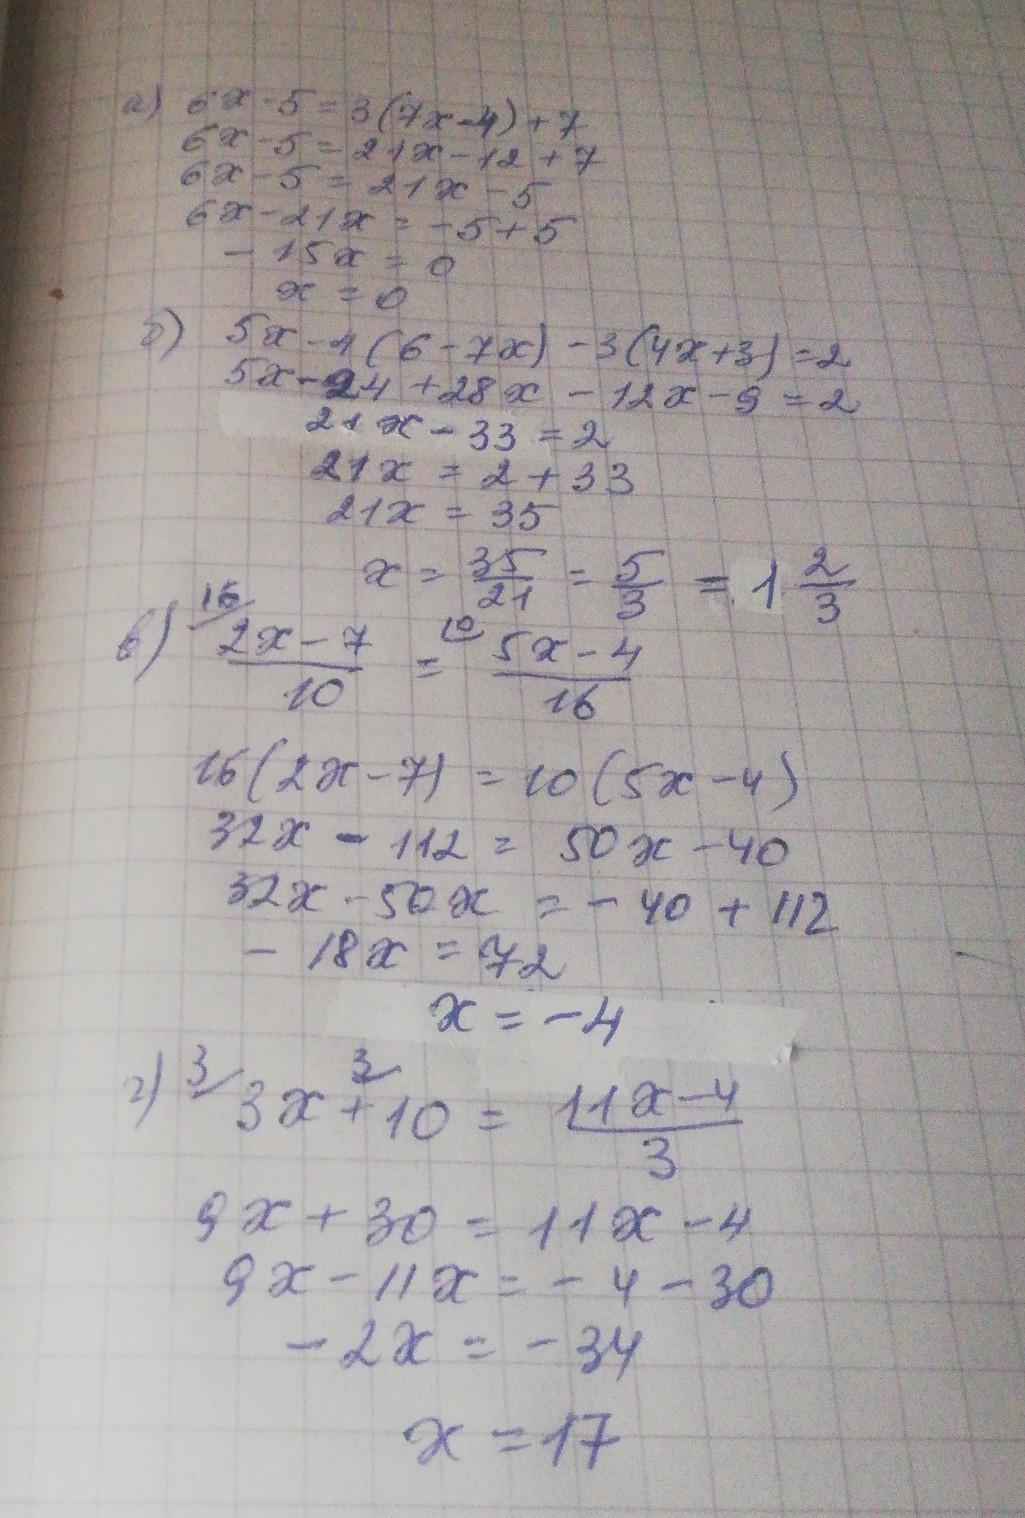 а) 6x-5=3(7x-4)+7
6x-5=21x-12+7
6x-5=21x-5
6x-21x=-5+5
-15x=0
x=0
б) 5x-4(6-7x)-3(4x+3)=2
5x-24+28x-12x-9=2
21x-33=2
21x=2+33
21x=35
x=35/21=5/3=1 2/3
в) 16/ (2x-7)/10 = 10/ (5x-4)/16
16(2x-7)=10(5x-4)
32x-112=50x-40
32x-50x=-40+112
-18x=72
x=-4
г) 3/ 3x+ 3/ 10=(11x-4)/3
9x+30=11x-4
9x-11x=-4-30
-2x=-34
x=17